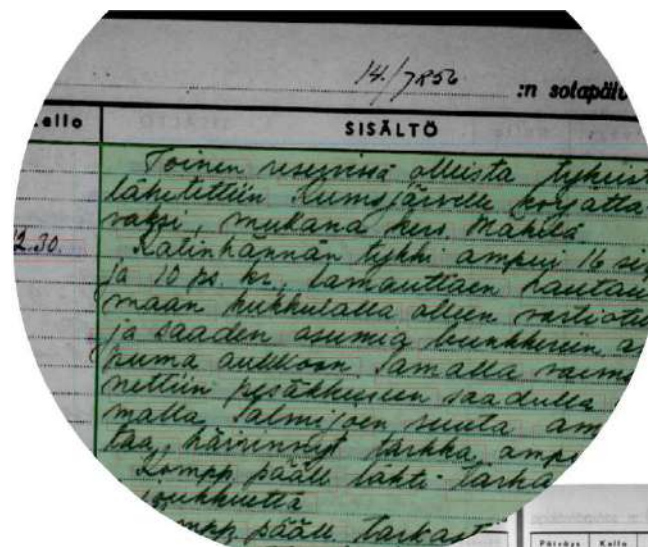 14./JR56 :n sotapäiv
Kello SISÄLTÖ
Toinen reservissä olleista tykeist
lähetettiin Kumsjärvelle korjatta
vaksi, mukana kers Mäkelä
12.30. Katinhännän tykki ampui 16 sir
ja 10 ps. kr., lamauttaen Hautau
maan kukkulalla olleen vartiotu
ja saaden osumia bunkkerin a
puma aukkoon. Samalla vaime
nettiin pesäkkeeseen saadulla
malla, Salmijoen suuta am
taa, häirinnyt tarkka ampu
Kompp. pääll. lähti tarka
joukkuetta
ompp. pääll. tarkast
Päiväys Kello